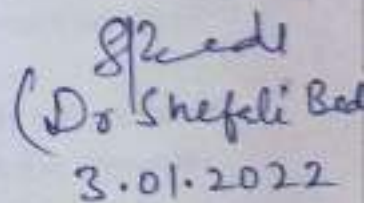 (Dr Shefali Bed
3.01.2022